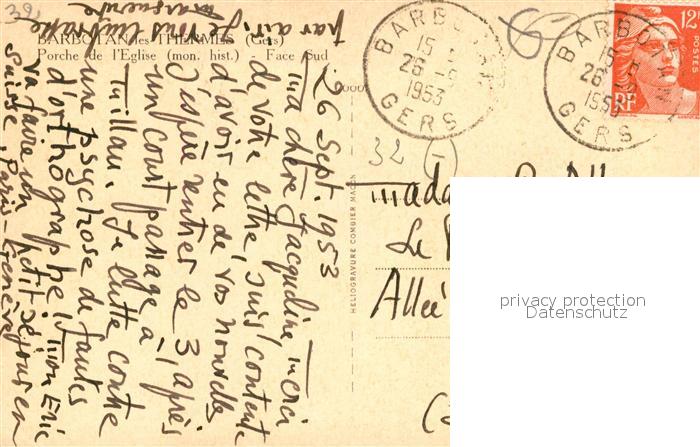 BARBOTAN les THERMES (Gers)
Porche de l'Eglise (mon. hist.) Face Sud
26 Sept. 1953
ma chère Jacqueline, merci
de votre lettre, suis contente
d'avoir eu de vos nouvelles
J'espère rentrer le 3, après
un court passage à
Je lutte contre
une psychose de fautes
d'orthographe! mon Eric
va faire un petit séjour en
Suisse, Paris-Genève
par air, Je vous embrasse
HELIOGRAVURE COMBIER MACON
BARBOTAN
15
26-9
1953
GERS
BARBO
15
26
195
GERS
12F
POSTES
RF
39
32
Mada
Le
Allée
privacy protection
Datenschutz